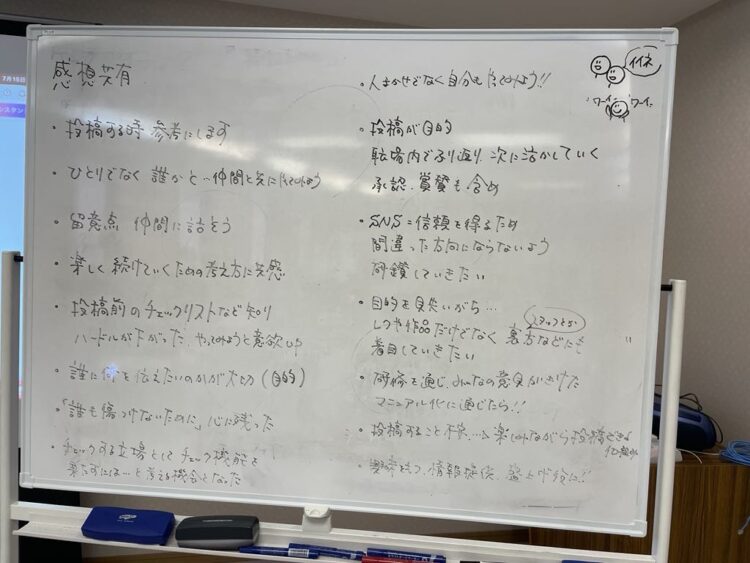 感想共有
・投稿する時 参考にします
・ひとりでなく 誰かと…仲間と共に作ってみよう
・留意点 仲間に話そう
・楽しく 続けていくための考え方に共感
・投稿前のチェックリストなど知り
ハードルが下がった、やってみようと意欲UP
・誰に何を伝えたいのかが大切(目的)
・「誰も傷つけないために」心に残った
・チェックする立場として チェック機能を
果たすには…と考える機会となった
・人まかせでなく自分も作ってみよう!!
イイネ
ワーイ
ワーイ
・投稿が目的
職場内でふり返り、次に活かしていく
承認、賞賛も含め
・SNS=信頼を得るため
間違った方向にならないよう
研鑽していきたい
・目的を見失いがち…
レクや作品だけでなく 裏方などにも
スタッフとか
着目していきたい
・研修を通じ、みんなの意見がきけた
マニュアル化に通じたら!!
・投稿すること 不安…→楽しみながら投稿できる
・情報提供、
7月15日